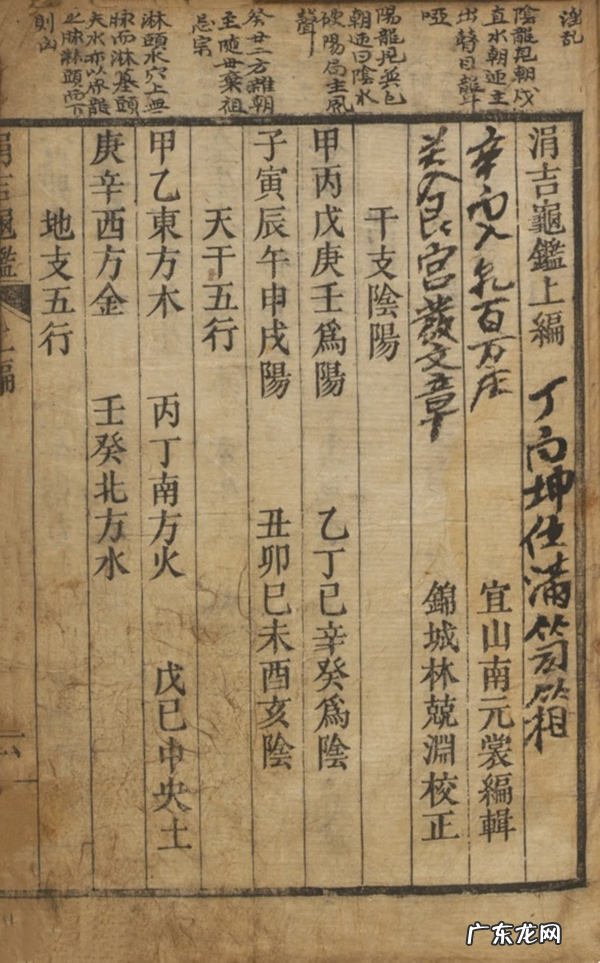 淫乱
陰龍見朝戌
直水朝迎主
出聾目龍耳
啞
陽龍見
朝迎曰陰水
硬陽局主風
聲
癸丑二方雜朝
至隨母棄祖
忌宗
淋頭水穴上無
脉而淋墓頭
夫水亦以界龍
之脉淋頭而下
則凶
涓吉龜鑑上編
丁向坤位滿笥箱
辛向入乾百万庄
癸艮宮發文章
宜山南元裳編輯
錦城林兢淵校正
干支陰陽
甲丙戊庚壬爲陽 乙丁己辛癸爲陰
子寅辰午申戌陽 丑卯巳未酉亥陰
天干五行
甲乙東方木 丙丁南方火 戊己中央土
庚辛西方金 壬癸北方水
地支五行
涓吉龜鑑 上編
广东龙网